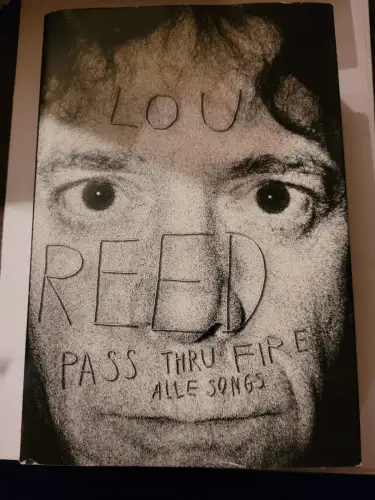 LOU
REED
PASS THRU FIRE
ALLE SONGS